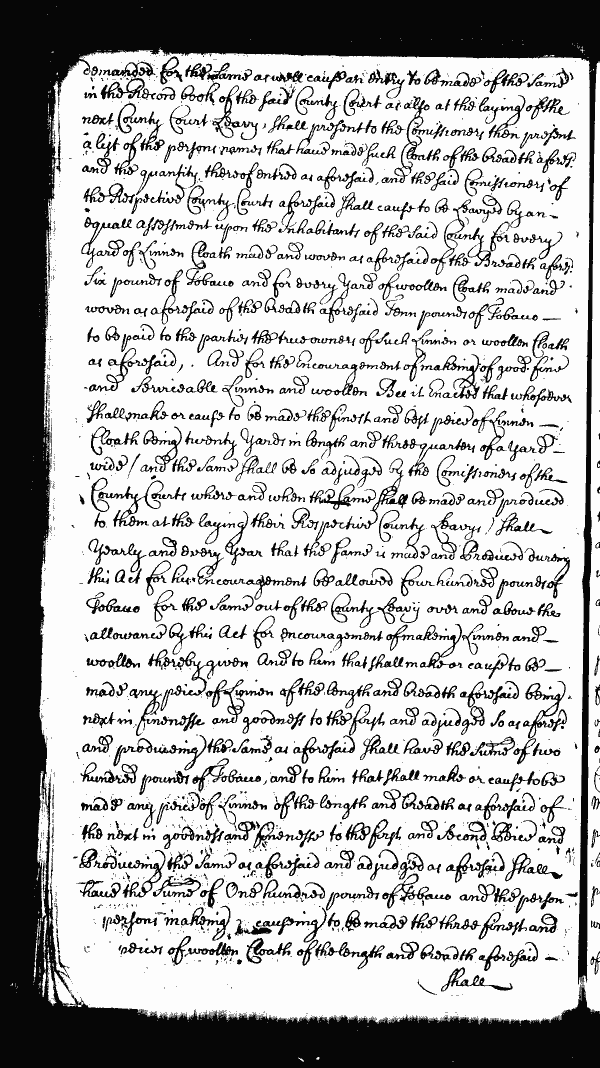 demanded for the same as well cause an entry to be made of the same
in the Record book of the said County Court as also at the laying of the
next County Court Leavy, shall present to the Comissioners then present
a list of the persons names that have made such Cloath of the breadth afores:
and the quantity thereof entred as aforesaid, and the said Comissioners of
the Respective County Courts aforesaid shall cause to be Leavyed by an
equall assessment upon the Inhabitants of the said County for every
Yard of Linnen Cloath made and woven as aforesaid of the Breadth afores:
Six pounds of Tobaco and for every Yard of woollen Cloath made and
woven as aforesaid of the breadth aforesaid Tenn pounds of Tobaco
to be paid to the parties the true owners of such Linnen or woollen Cloath
as aforesaid, . And for the Encouragement of makeing of good fine
and Serviceable Linnen and woollen Bee it Enacted that whosoever
shall make or cause to be made the finest and best peice of Linnen
Cloath being twenty Yards in length and three quarters of a Yard
wide / and the same shall be so adjudged by the Comissioners of the
County Courts where and when the same shall be made and produced
to them at the laying their Respective County Leavys / shall
Yearly and every Year that the same is made and Produced dureing
this Act for his Encouragement be allowed four hundred pounds of
Tobaco for the same out of the County Leavy over and above the
allowance by this Act for encouragement of makeing Linnen and
woollen thereby given And to him that shall make or cause to be
made any peice of Linnen of the length and breadth aforesaid being
next in finenesse and goodness to the first and adjudged so as afores:d
and produceing the same as aforesaid shall have the Sume of two
hundred pounds of Tobaco, and to him that shall make or cause to be
made any peice of Linnen of the length and breadth as aforesaid of
the next in goodness and finenesse to the first and Second Peice and
Produceing the same as aforesaid and adjudged as aforesaid shall
have the Sume of One hundred pounds of Tobaco and the person
persons makeing causeing to be made the three finest and
peices of woollen Cloath of the length and breadth aforesaid
shall